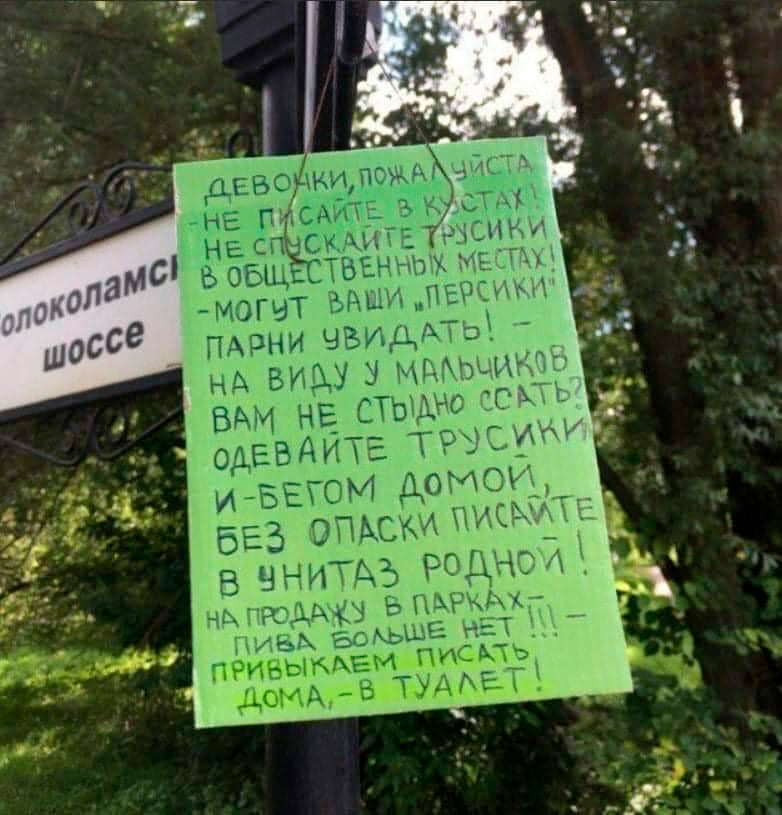 олоколамс
шоссе
ДЕВОЧКИ, ПОЖАЛУЙСТА
-НЕ ПИСАЙТЕ В КУСТАХ!
НЕ СПУСКАЙТЕ ТРУСИКИ
В ОБЩЕСТВЕННЫХ МЕСТАХ!
-МОГУТ ВАШИ „ПЕРСИКИ"
ПАРНИ УВИДАТЬ! -
НА ВИДУ У МАЛЬЧИКОВ
ВАМ НЕ СТЫДНО ССАТЬ?
ОДЕВАЙТЕ ТРУСИКИ
И-БЕГОМ ДОМОЙ,
БЕЗ ОПАСКИ ПИСАЙТЕ
В УНИТАЗ РОДНОЙ!
НА ПРОДАЖУ В ПАРКАХ-
ПИВА БОЛЬШЕ НЕТ!!! -
ПРИВЫКАЕМ ПИСАТЬ
ДОМА,-В ТУАЛЕТ!